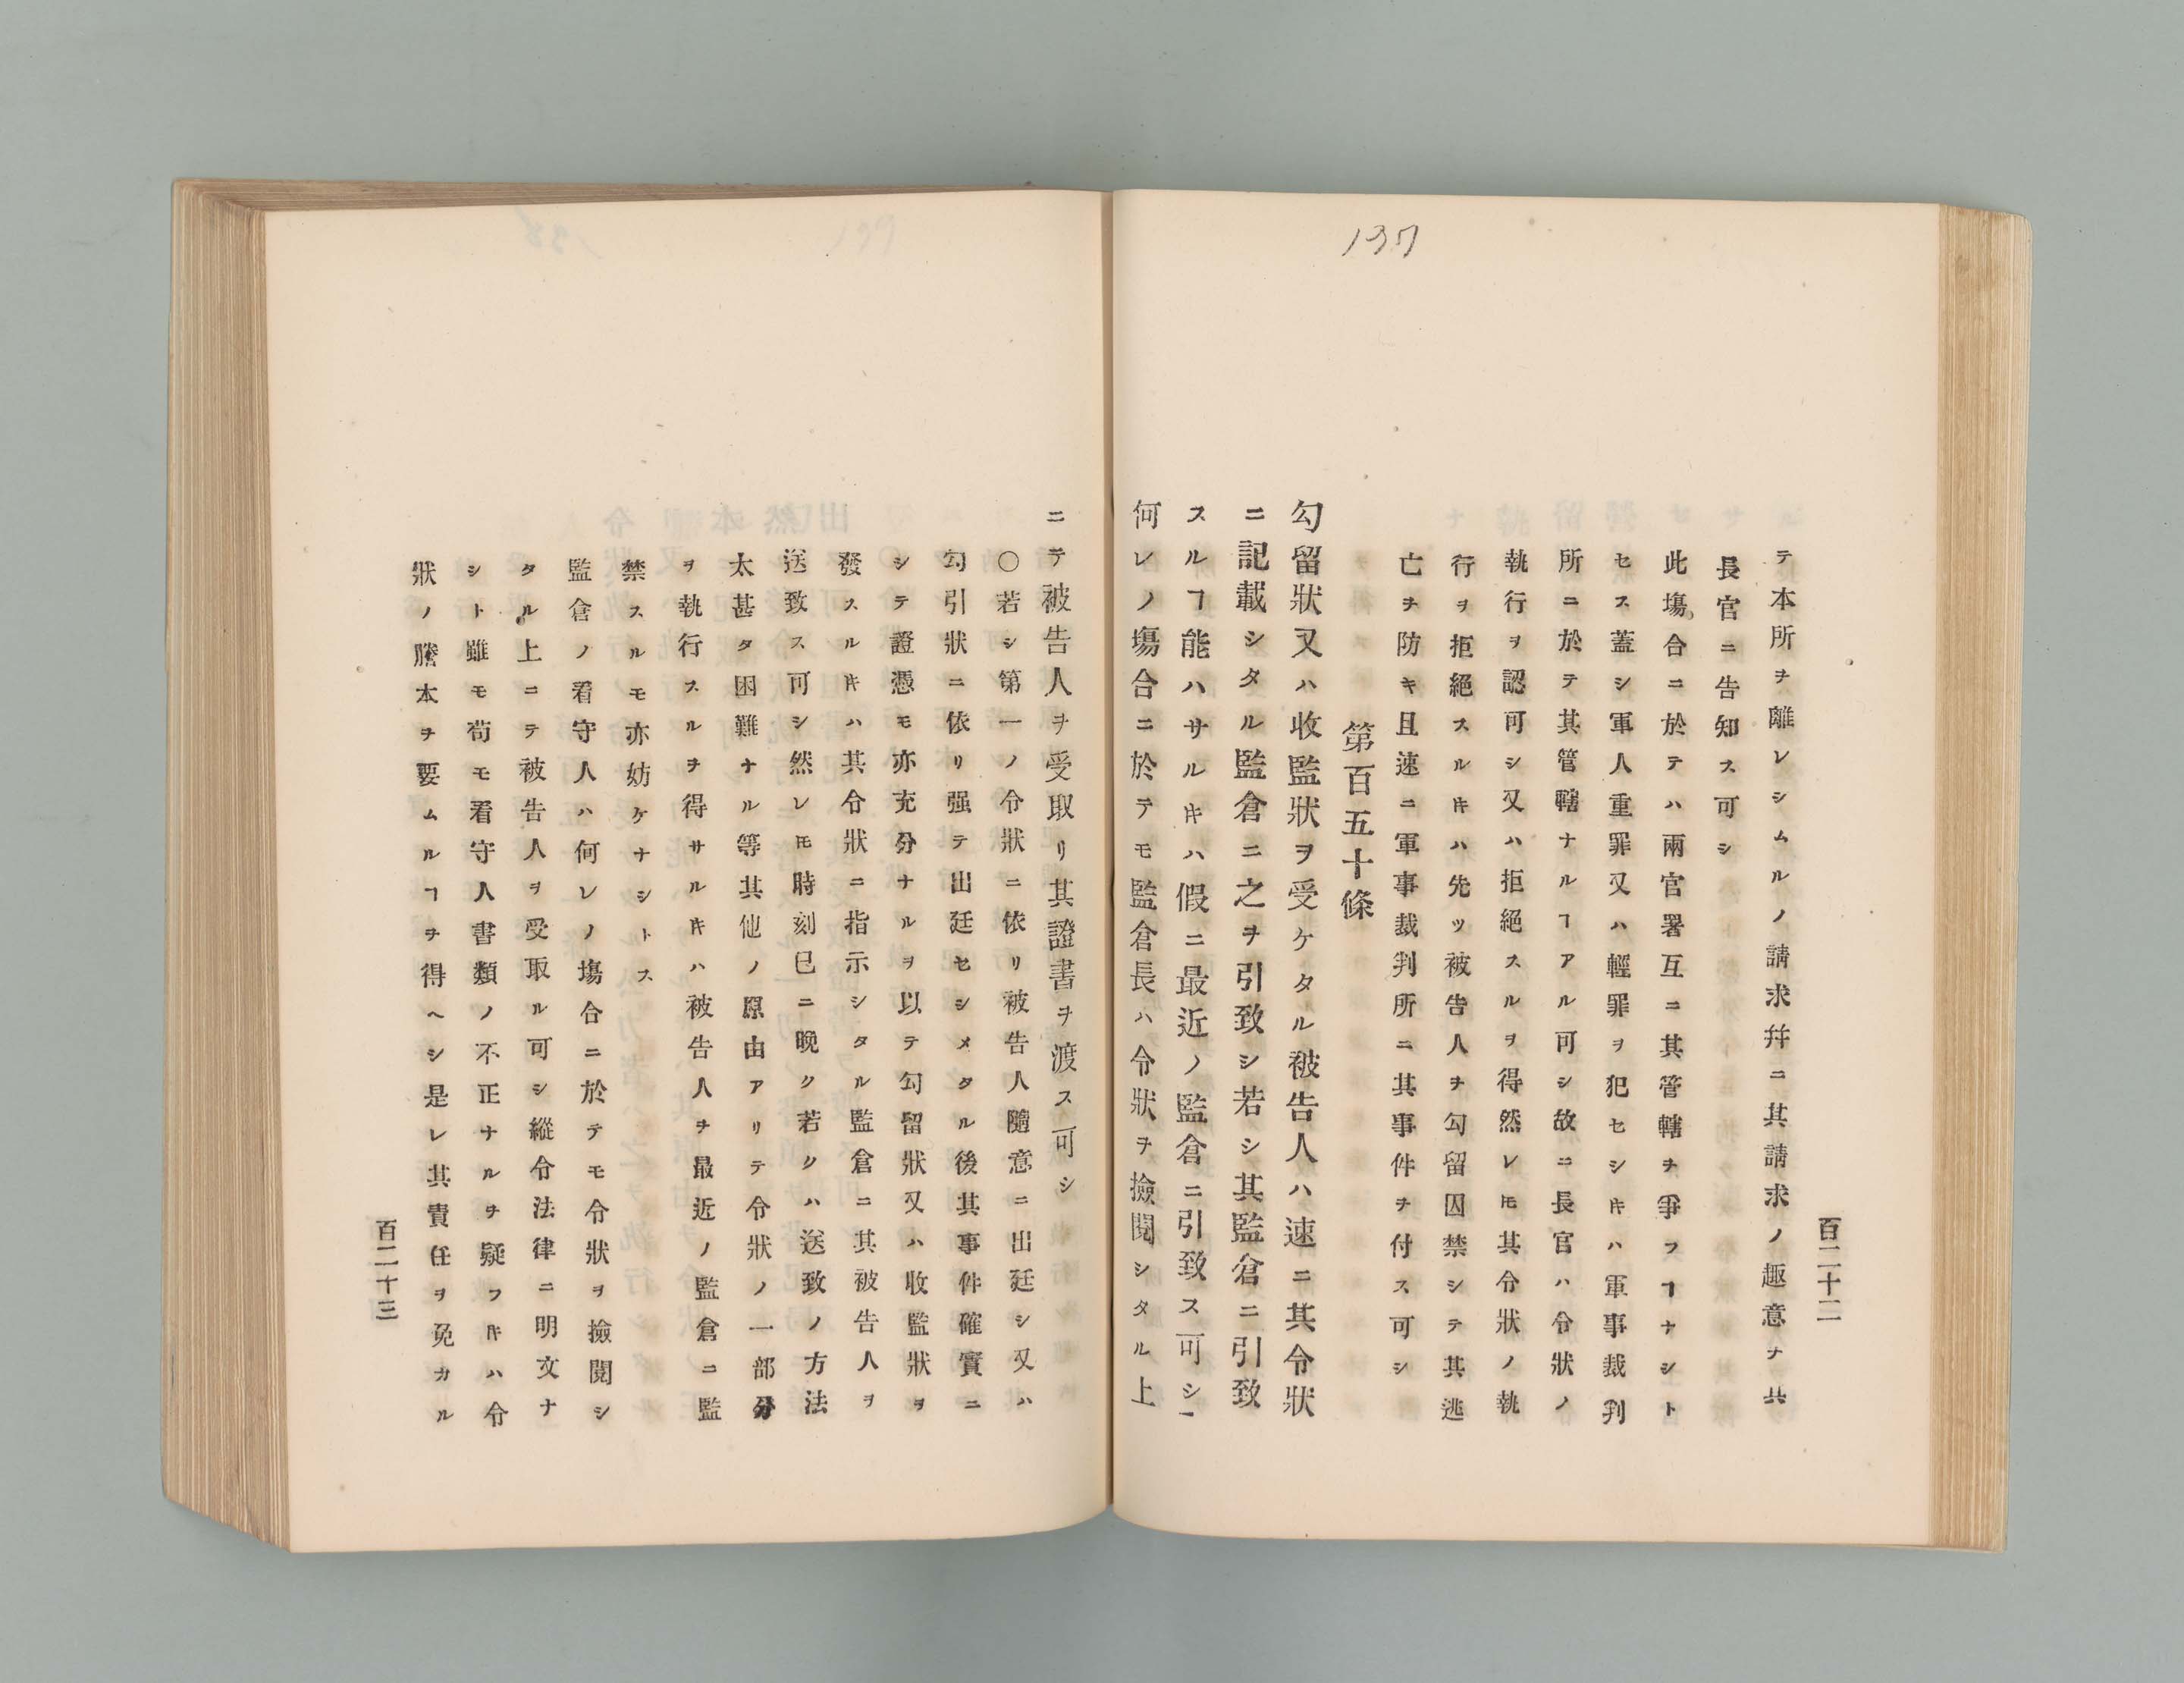 137
百二十二
テ本所ヲ離レシムルノ請求幷ニ其請求ノ趣意ヲ共
長官ニ告知ス可シ
此塲合ニ於テハ兩官署互ニ其管轄ヲ爭フヿナシト
セス蓋シ軍人重罪又ハ輕罪ヲ犯セシ𪜈ハ軍事裁判
所ニ於テ其管轄ナルヿアル可シ故ニ長官ハ令狀ノ
執行ヲ認可シ又ハ拒絕スルヲ得然レ𪜈其令狀ノ執
行ヲ拒絕スル𪜈ハ先ツ被告人ヲ勾留囚禁シテ其逃
亡ヲ防キ且速ニ軍事裁判所ニ其事件ヲ付ス可シ
第百五十條
勾留狀又ハ收監狀ヲ受ケタル被告人ハ速ニ其令狀
ニ記載シタル監倉ニ之ヲ引致シ若シ其監倉ニ引致
スルヿ能ハサル𪜈ハ假ニ最近ノ監倉ニ引致ス可シ
何レノ塲合ニ於テモ監倉長ハ令狀ヲ撿閱シタル上
ニテ被告人ヲ受取リ其證書ヲ渡ス可シ
○若シ第一ノ令狀ニ依リ被告人隨意ニ出廷シ又ハ
勾引狀ニ依リ强テ出廷セシメタル後其事件確實ニ
シテ證憑モ亦充分ナルヲ以テ勾留狀又ハ收監狀ヲ
發スル𪜈ハ其令狀ニ指示シタル監倉ニ其被告人ヲ
送致ス可シ然レ𪜈時刻已ニ晚ク若クハ送致ノ方法
太甚タ困難ナル等其他ノ原由アリテ令狀ノ一部分
ヲ執行スルヲ得サル𪜈ハ被告人ヲ最近ノ監倉ニ監
禁スルモ亦妨ケナシトス
監倉ノ看守人ハ何レノ塲合ニ於テモ令狀ヲ撿閱シ
タル上ニテ被告人ヲ受取ル可シ縱令法律ニ明文ナ
シト雖モ苟モ看守人書類ノ不正ナルヲ疑フ𪜈ハ令
狀ノ謄本ヲ要ムルヿヲ得ヘシ是レ其責任ヲ免カル
百二十三